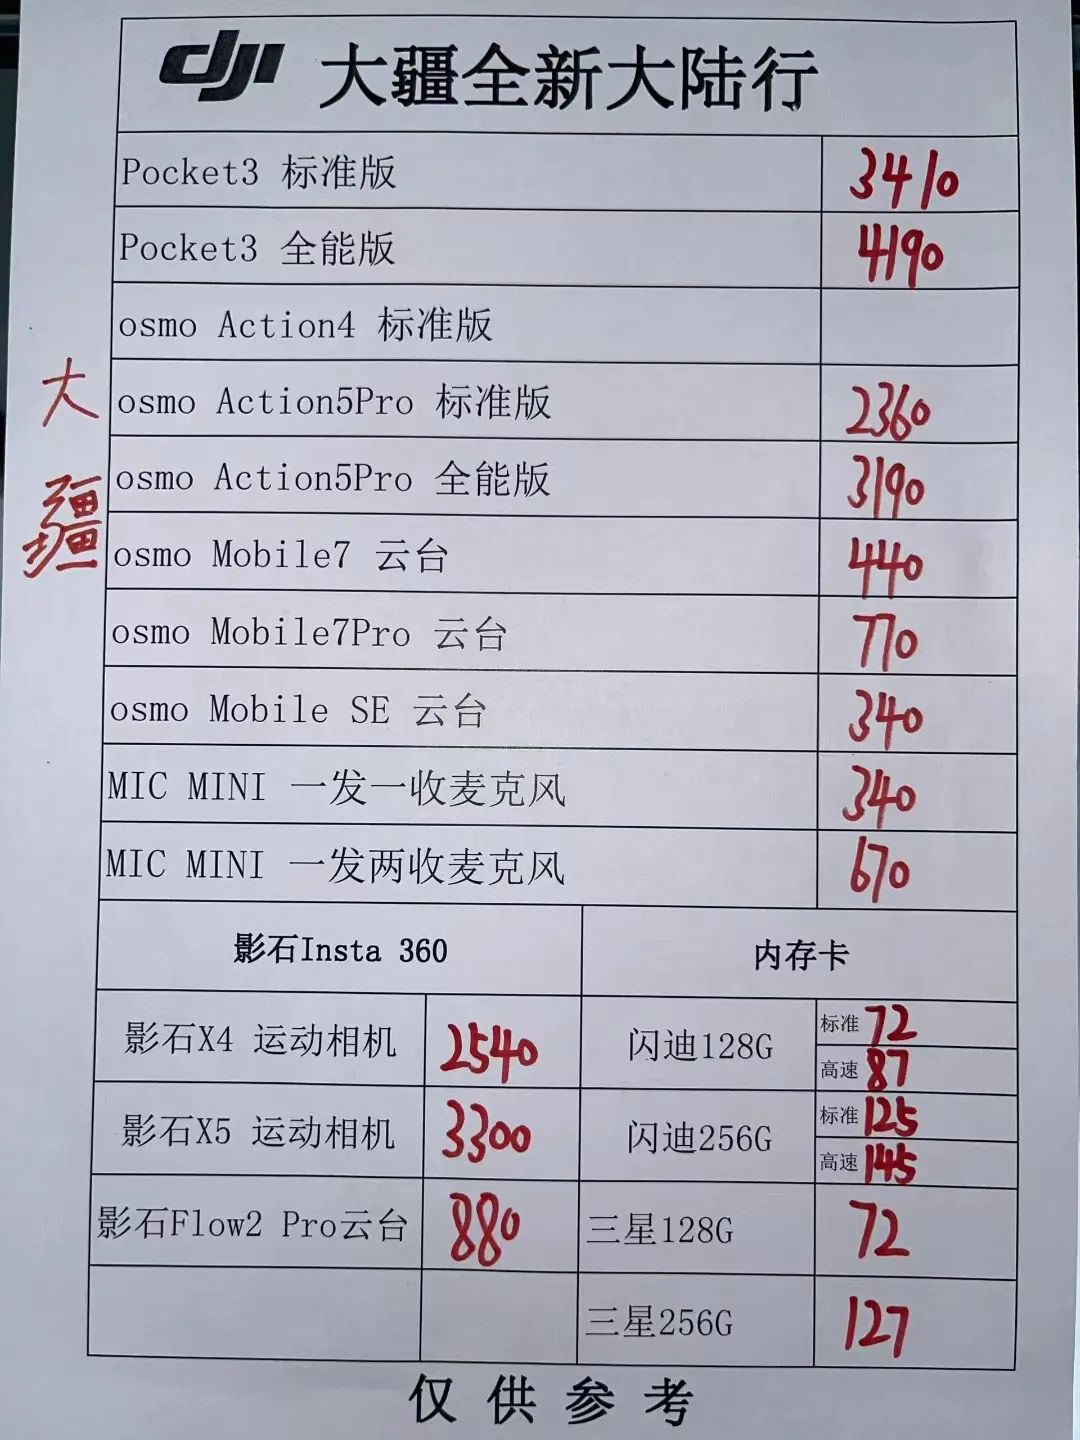 dji 大疆全新大陆行
Pocket3 标准版 3410
Pocket3 全能版 4190
osmo Action4 标准版
osmo Action5Pro 标准版 2360
osmo Action5Pro 全能版 3190
osmo Mobile7 云台 440
osmo Mobile7Pro 云台 770
osmo Mobile SE 云台 340
MIC MINI 一发一收麦克风 340
MIC MINI 一发两收麦克风 670
大疆
影石Insta 360 内存卡
影石X4 运动相机 2540 闪迪128G 标准 72
高速 87
影石X5 运动相机 3300 闪迪256G 标准 125
高速 145
影石Flow2 Pro云台 880 三星128G 72
三星256G 127
仅供参考